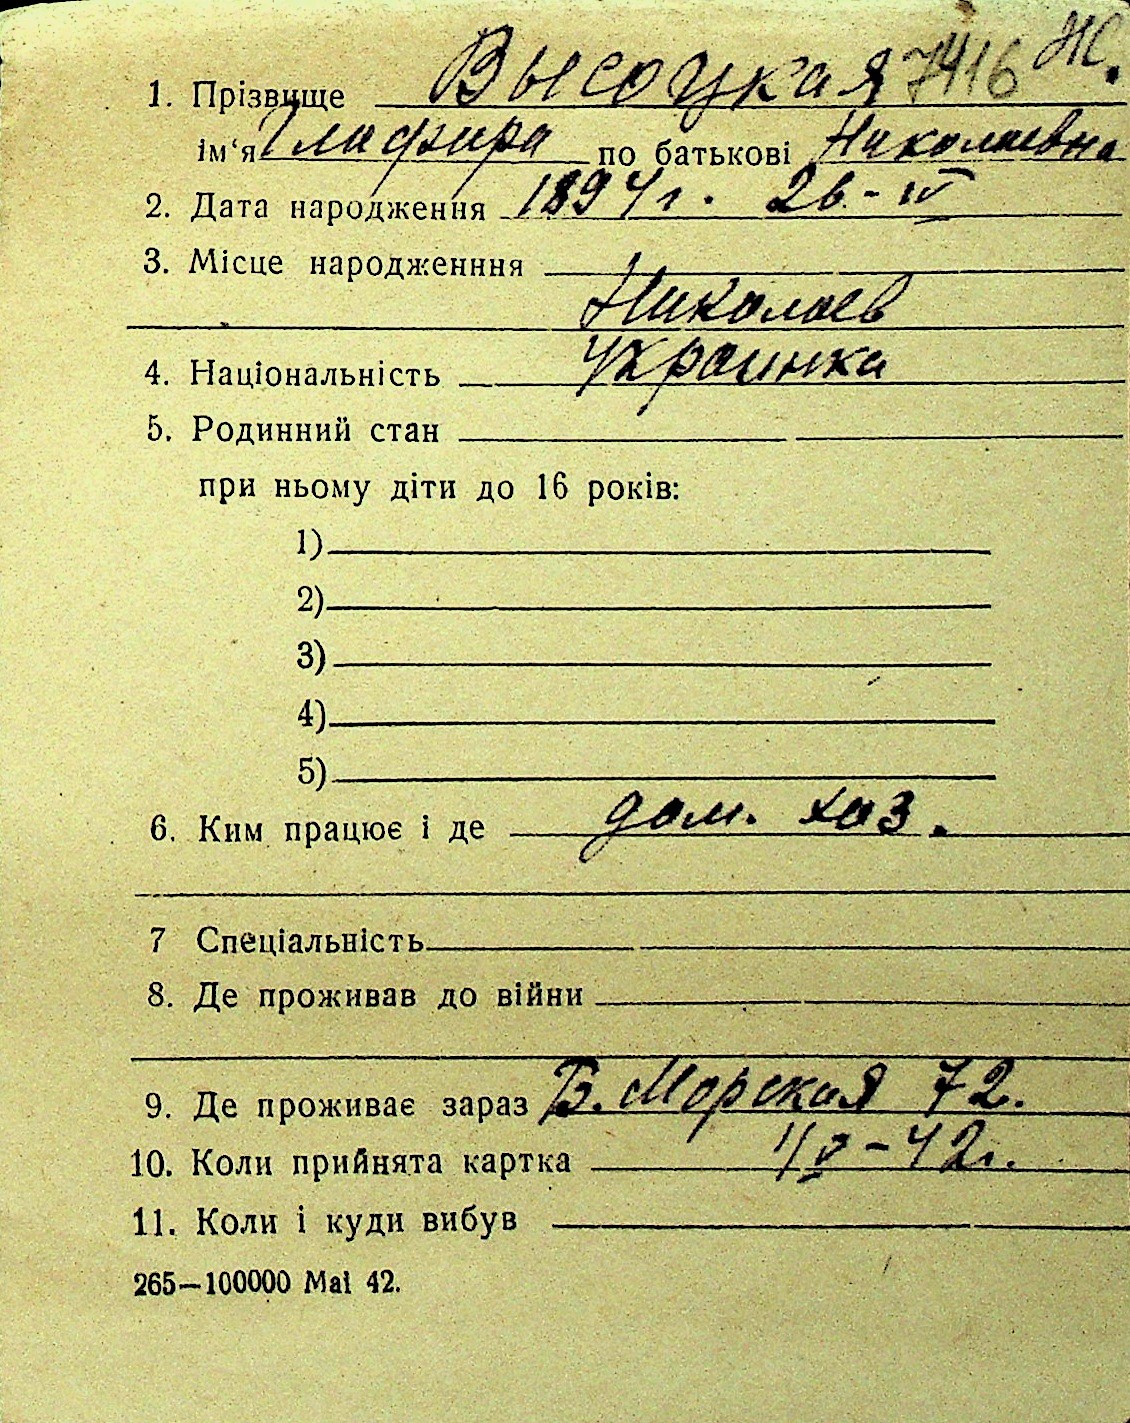 1. Прізвище Высоцкая 7416 Ж.
ім‘я Глафира по батькові Николаевна
2. Дата народження 1894 г. 26 - IV
3. Місце народженння
Николаев
4. Національність Украинка
5. Родинний стан
при ньому діти до 16 років:
1)
2)
3)
4)
5)
6. Ким працює і де дом. хоз.
7 Спеціальність
8. Де проживав до війни
9. Де проживає зараз Б. Морская 72.
10. Коли прийнята картка 1/V - 42 г.
11. Коли і куди вибув
265—100000 Mai 42.